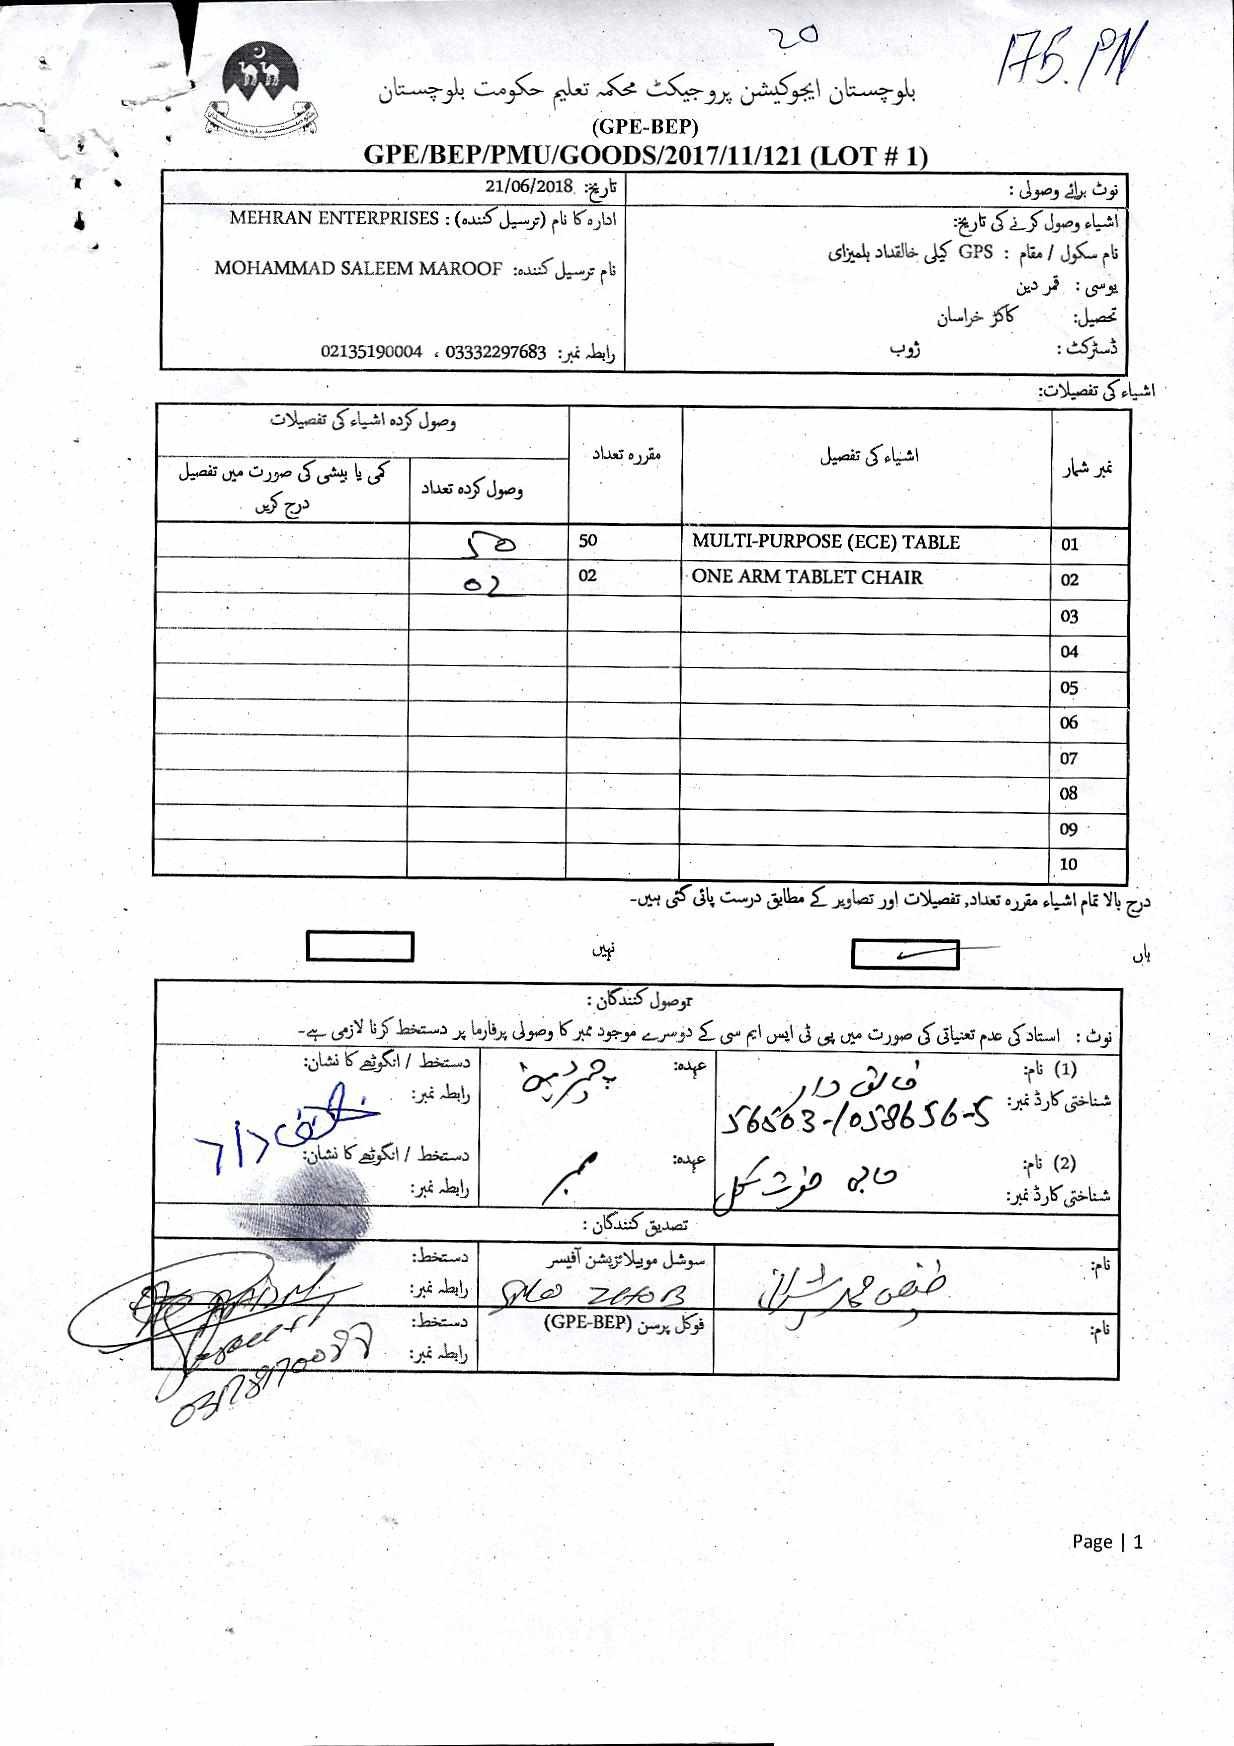 20
175.PN
بلوچستان ایجوکیشن پروجیکٹ محکمہ تعلیم حکومت بلوچستان
(GPE-BEP)
GPE/BEP/PMU/GOODS/2017/11/121 (LOT # 1)
نوٹ برائے وصولی :
تاریخ: 21/06/2018
اشیاء وصول کرنے کی تاریخ:
ادارہ کا نام (ترسیل کنندہ) : MEHRAN ENTERPRISES
نام سکول / مقام : GPS کیلی خالقداد بلمیزای
نام ترسیل کنندہ: MOHAMMAD SALEEM MAROOF
یوسی : قمر دین
تحصیل: کاکڑ خراسان
ڈسٹرکٹ : ژوب
رابطہ نمبر: 03332297683 ، 02135190004
اشیاء کی تفصیلات:
نمبر شمار اشیاء کی تفصیل مقررہ تعداد وصول کردہ اشیاء کی تفصیلات
وصول کردہ تعداد کمی یا بیشی کی صورت میں تفصیل درج کریں
01 MULTI-PURPOSE (ECE) TABLE 50 50
02 ONE ARM TABLET CHAIR 02 02
03
04
05
06
07
08
09
10
درج بالا تمام اشیاء مقررہ تعداد, تفصیلات اور تصاویر کے مطابق درست پائی گئی ہیں۔
ہاں نہیں
وصول کنندگان :
نوٹ : استاد کی عدم تعنیاتی کی صورت میں پی ٹی ایس ایم سی کے دوسرے موجود ممبر کا وصولی پرفارما پر دستخط کرنا لازمی ہے۔
(1) نام: خالق داد عہدہ: دستخط / انگوٹھے کا نشان:
شناختی کارڈ نمبر: 56503-1058656-5 رابطہ نمبر:
(2) نام: حاجی گل عہدہ: ممبر دستخط / انگوٹھے کا نشان:
شناختی کارڈ نمبر: رابطہ نمبر:
تصدیق کنندگان :
نام: محمد سوشل موبیلائزیشن آفیسر دستخط:
ZHOB رابطہ نمبر:
نام: فوکل پرسن (GPE-BEP) دستخط:
رابطہ نمبر:
Page | 1